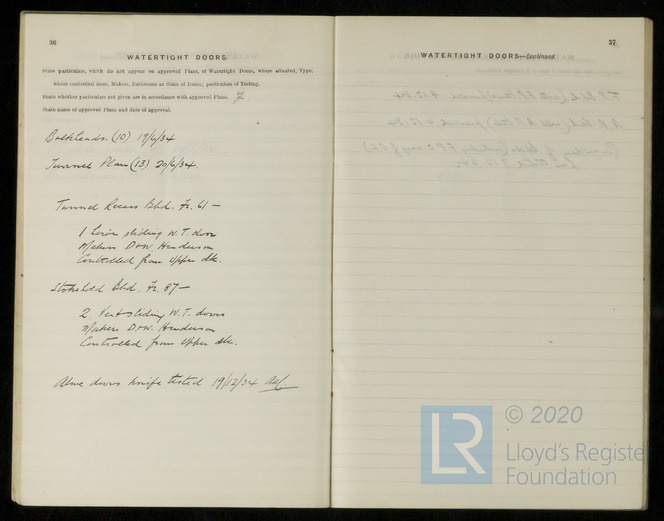 36
WATERTIGHT DOORS.
State particulars, which do not appear on approved Plans, of Watertight Doors, where situated, Type,
where controlled from, Makers, Thickness at Sides of Doors; particulars of Testing.
State whether particulars not given are in accordance with approved Plans.
State name of approved Plans and date of approval.
Bulkheads. (10) 19/6/34
Tunnel Plan (13) 20/6/34.
Tunnel Recess Bhd. Fr. 61 —
1 sliding W.T. door
Makers D & W. Henderson
Controlled from Upper dk.
Stokehold Bhd. Fr. 87 —
2 Vert sliding W.T. doors
Makers D & W. Henderson
Controlled from Upper dk.
Above doors knife tested 19/12/34
37
WATERTIGHT DOORS—Continued.
LR
© 2020
Lloyd's Register
Foundation